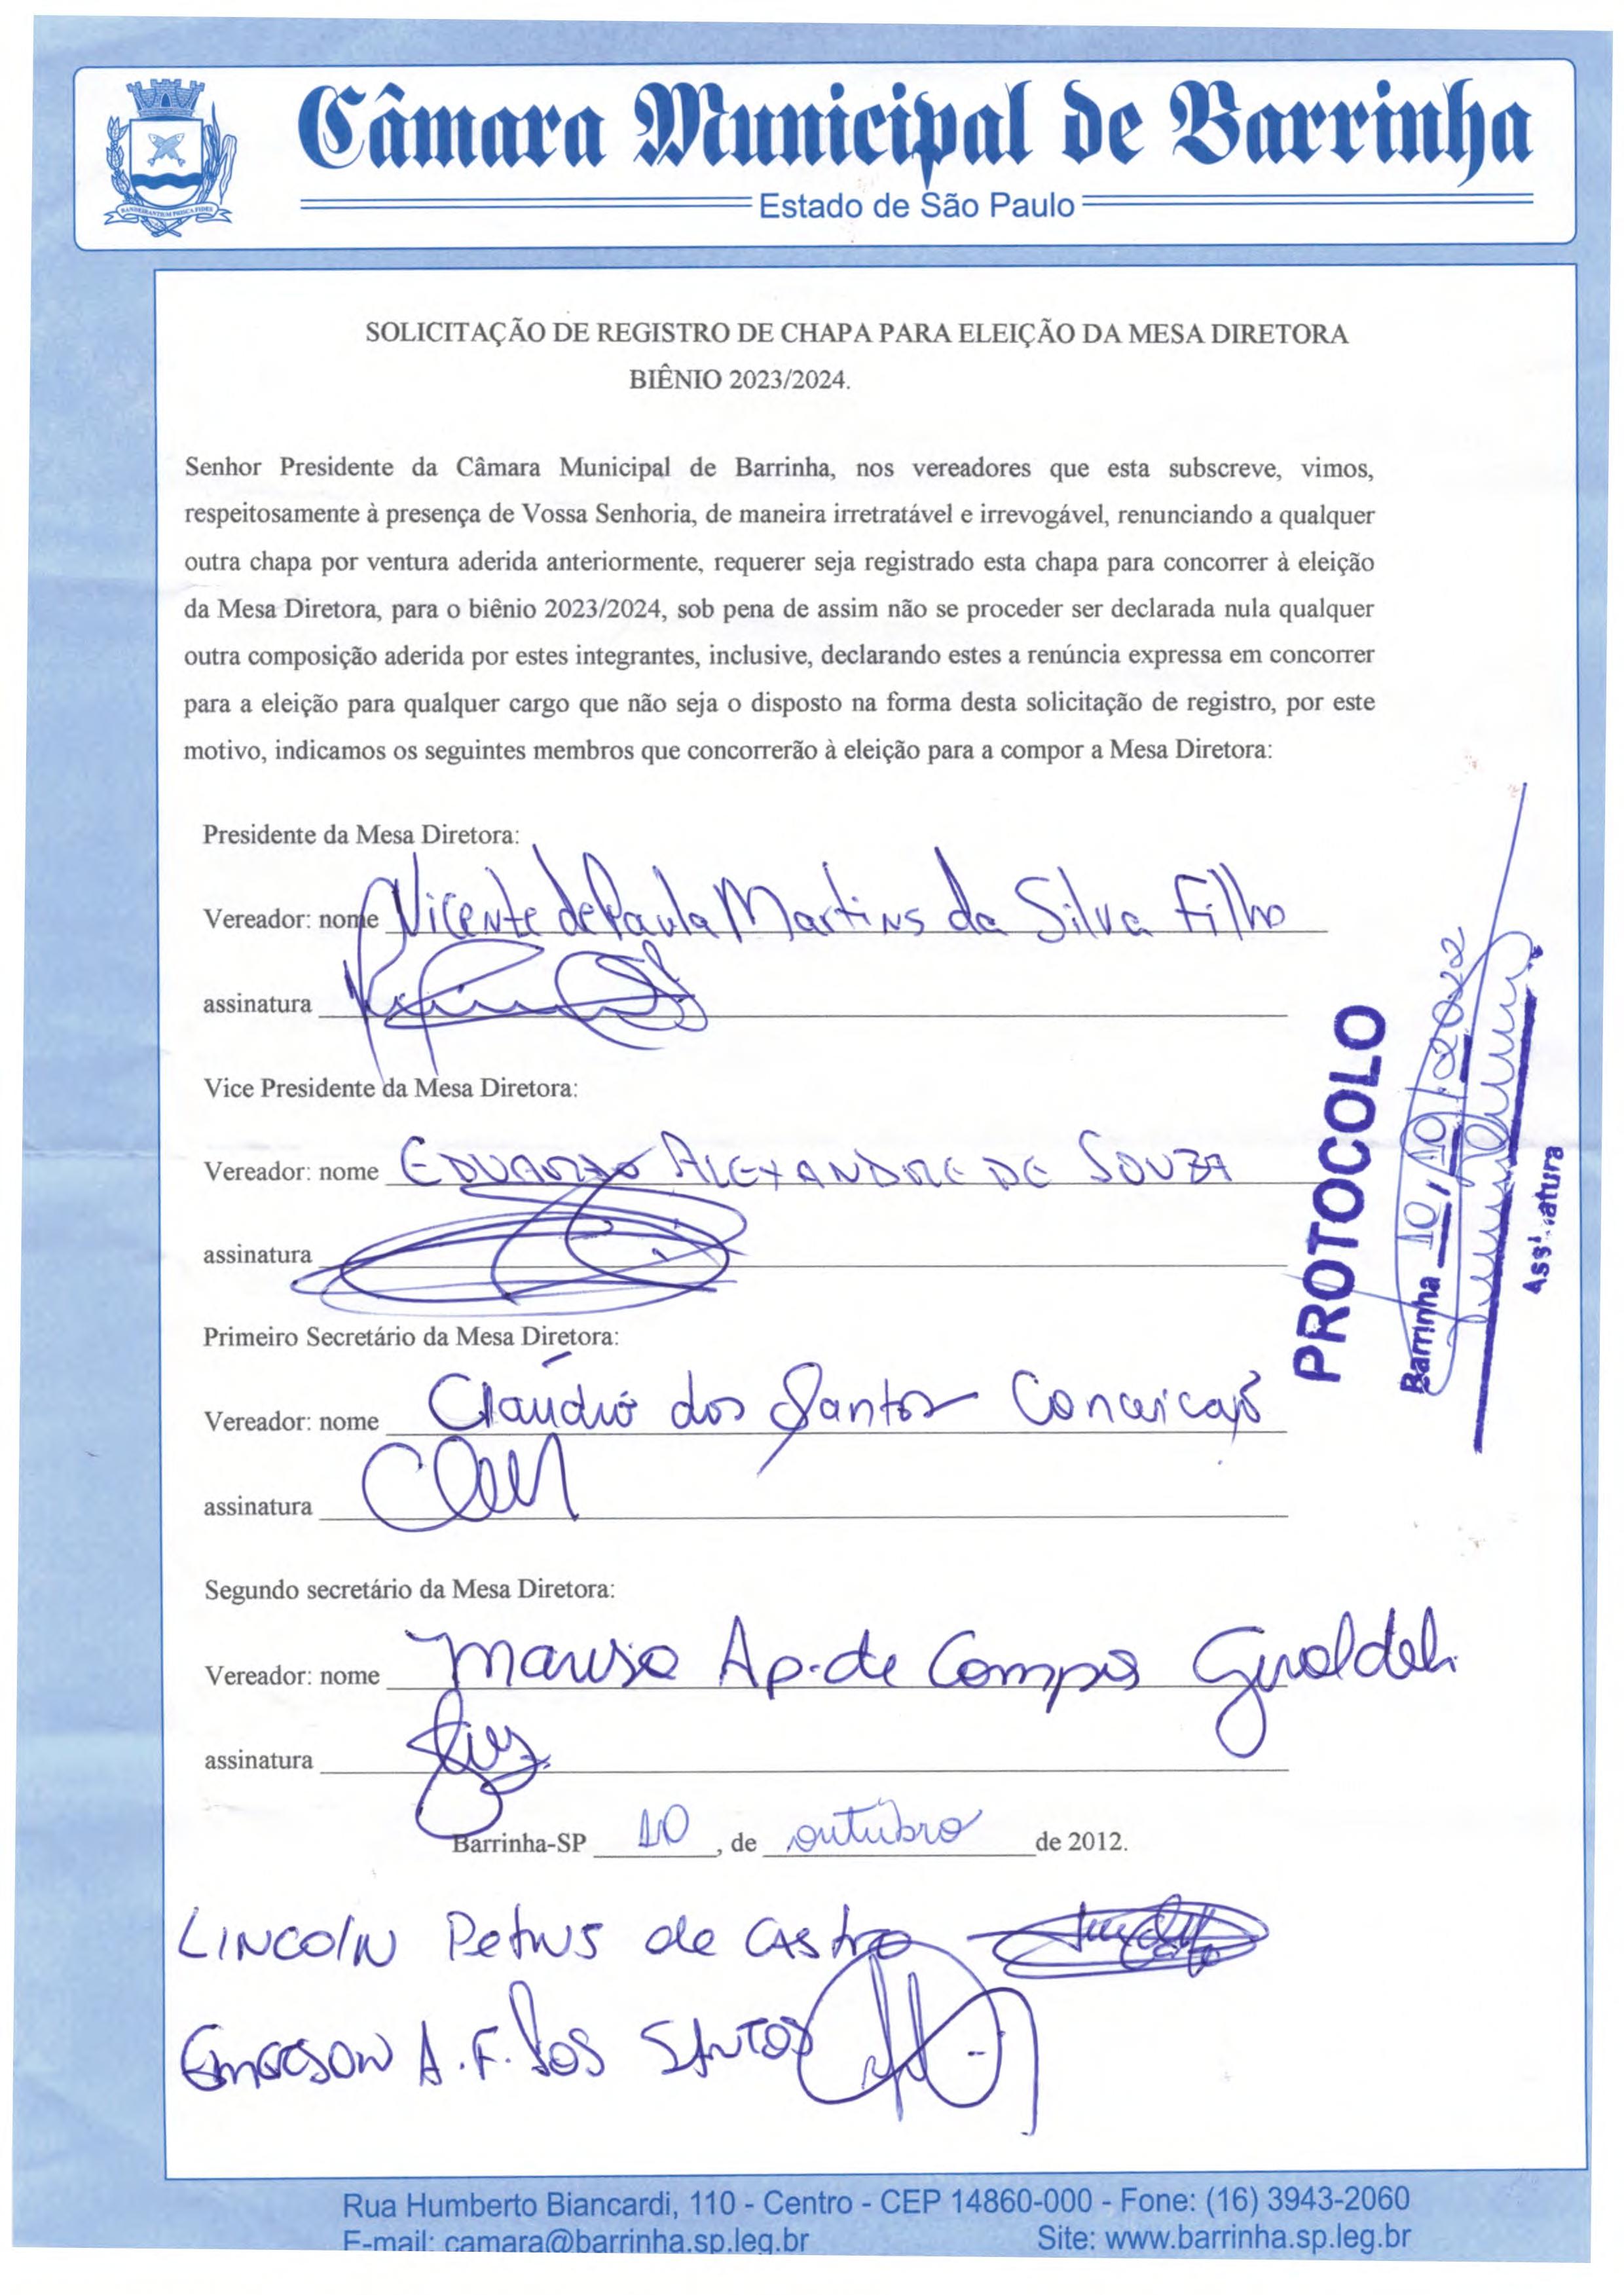 Câmara Municipal de Barrinha
Estado de São Paulo
BANDEIRANTIUM PRISCA FIDES
SOLICITAÇÃO DE REGISTRO DE CHAPA PARA ELEIÇÃO DA MESA DIRETORA
BIÊNIO 2023/2024.
Senhor Presidente da Câmara Municipal de Barrinha, nos vereadores que esta subscreve, vimos,
respeitosamente à presença de Vossa Senhoria, de maneira irretratável e irrevogável, renunciando a qualquer
outra chapa por ventura aderida anteriormente, requerer seja registrado esta chapa para concorrer à eleição
da Mesa Diretora, para o biênio 2023/2024, sob pena de assim não se proceder ser declarada nula qualquer
outra composição aderida por estes integrantes, inclusive, declarando estes a renúncia expressa em concorrer
para a eleição para qualquer cargo que não seja o disposto na forma desta solicitação de registro, por este
motivo, indicamos os seguintes membros que concorrerão à eleição para a compor a Mesa Diretora:
Presidente da Mesa Diretora:
Vereador: nome Vicente de Paula Martins da Silva Filho
assinatura
Vice Presidente da Mesa Diretora:
Vereador: nome EDUARDO ALEXANDRE DE SOUZA
assinatura
Primeiro Secretário da Mesa Diretora:
Vereador: nome Cláudio dos Santos Conceicaõ
assinatura
Segundo secretário da Mesa Diretora:
Vereador: nome Marisa Ap. de Campos Giraldeli
assinatura
Barrinha-SP 10, de outubro de 2012.
LINCOLN Petrus de CAStro
EMERSON A. F. DOS SANTOS
PROTOCOLO
Barrinha 10/10/2022
Assinatura
Rua Humberto Biancardi, 110 - Centro - CEP 14860-000 - Fone: (16) 3943-2060
E-mail: camara@barrinha.sp.leg.br Site: www.barrinha.sp.leg.br